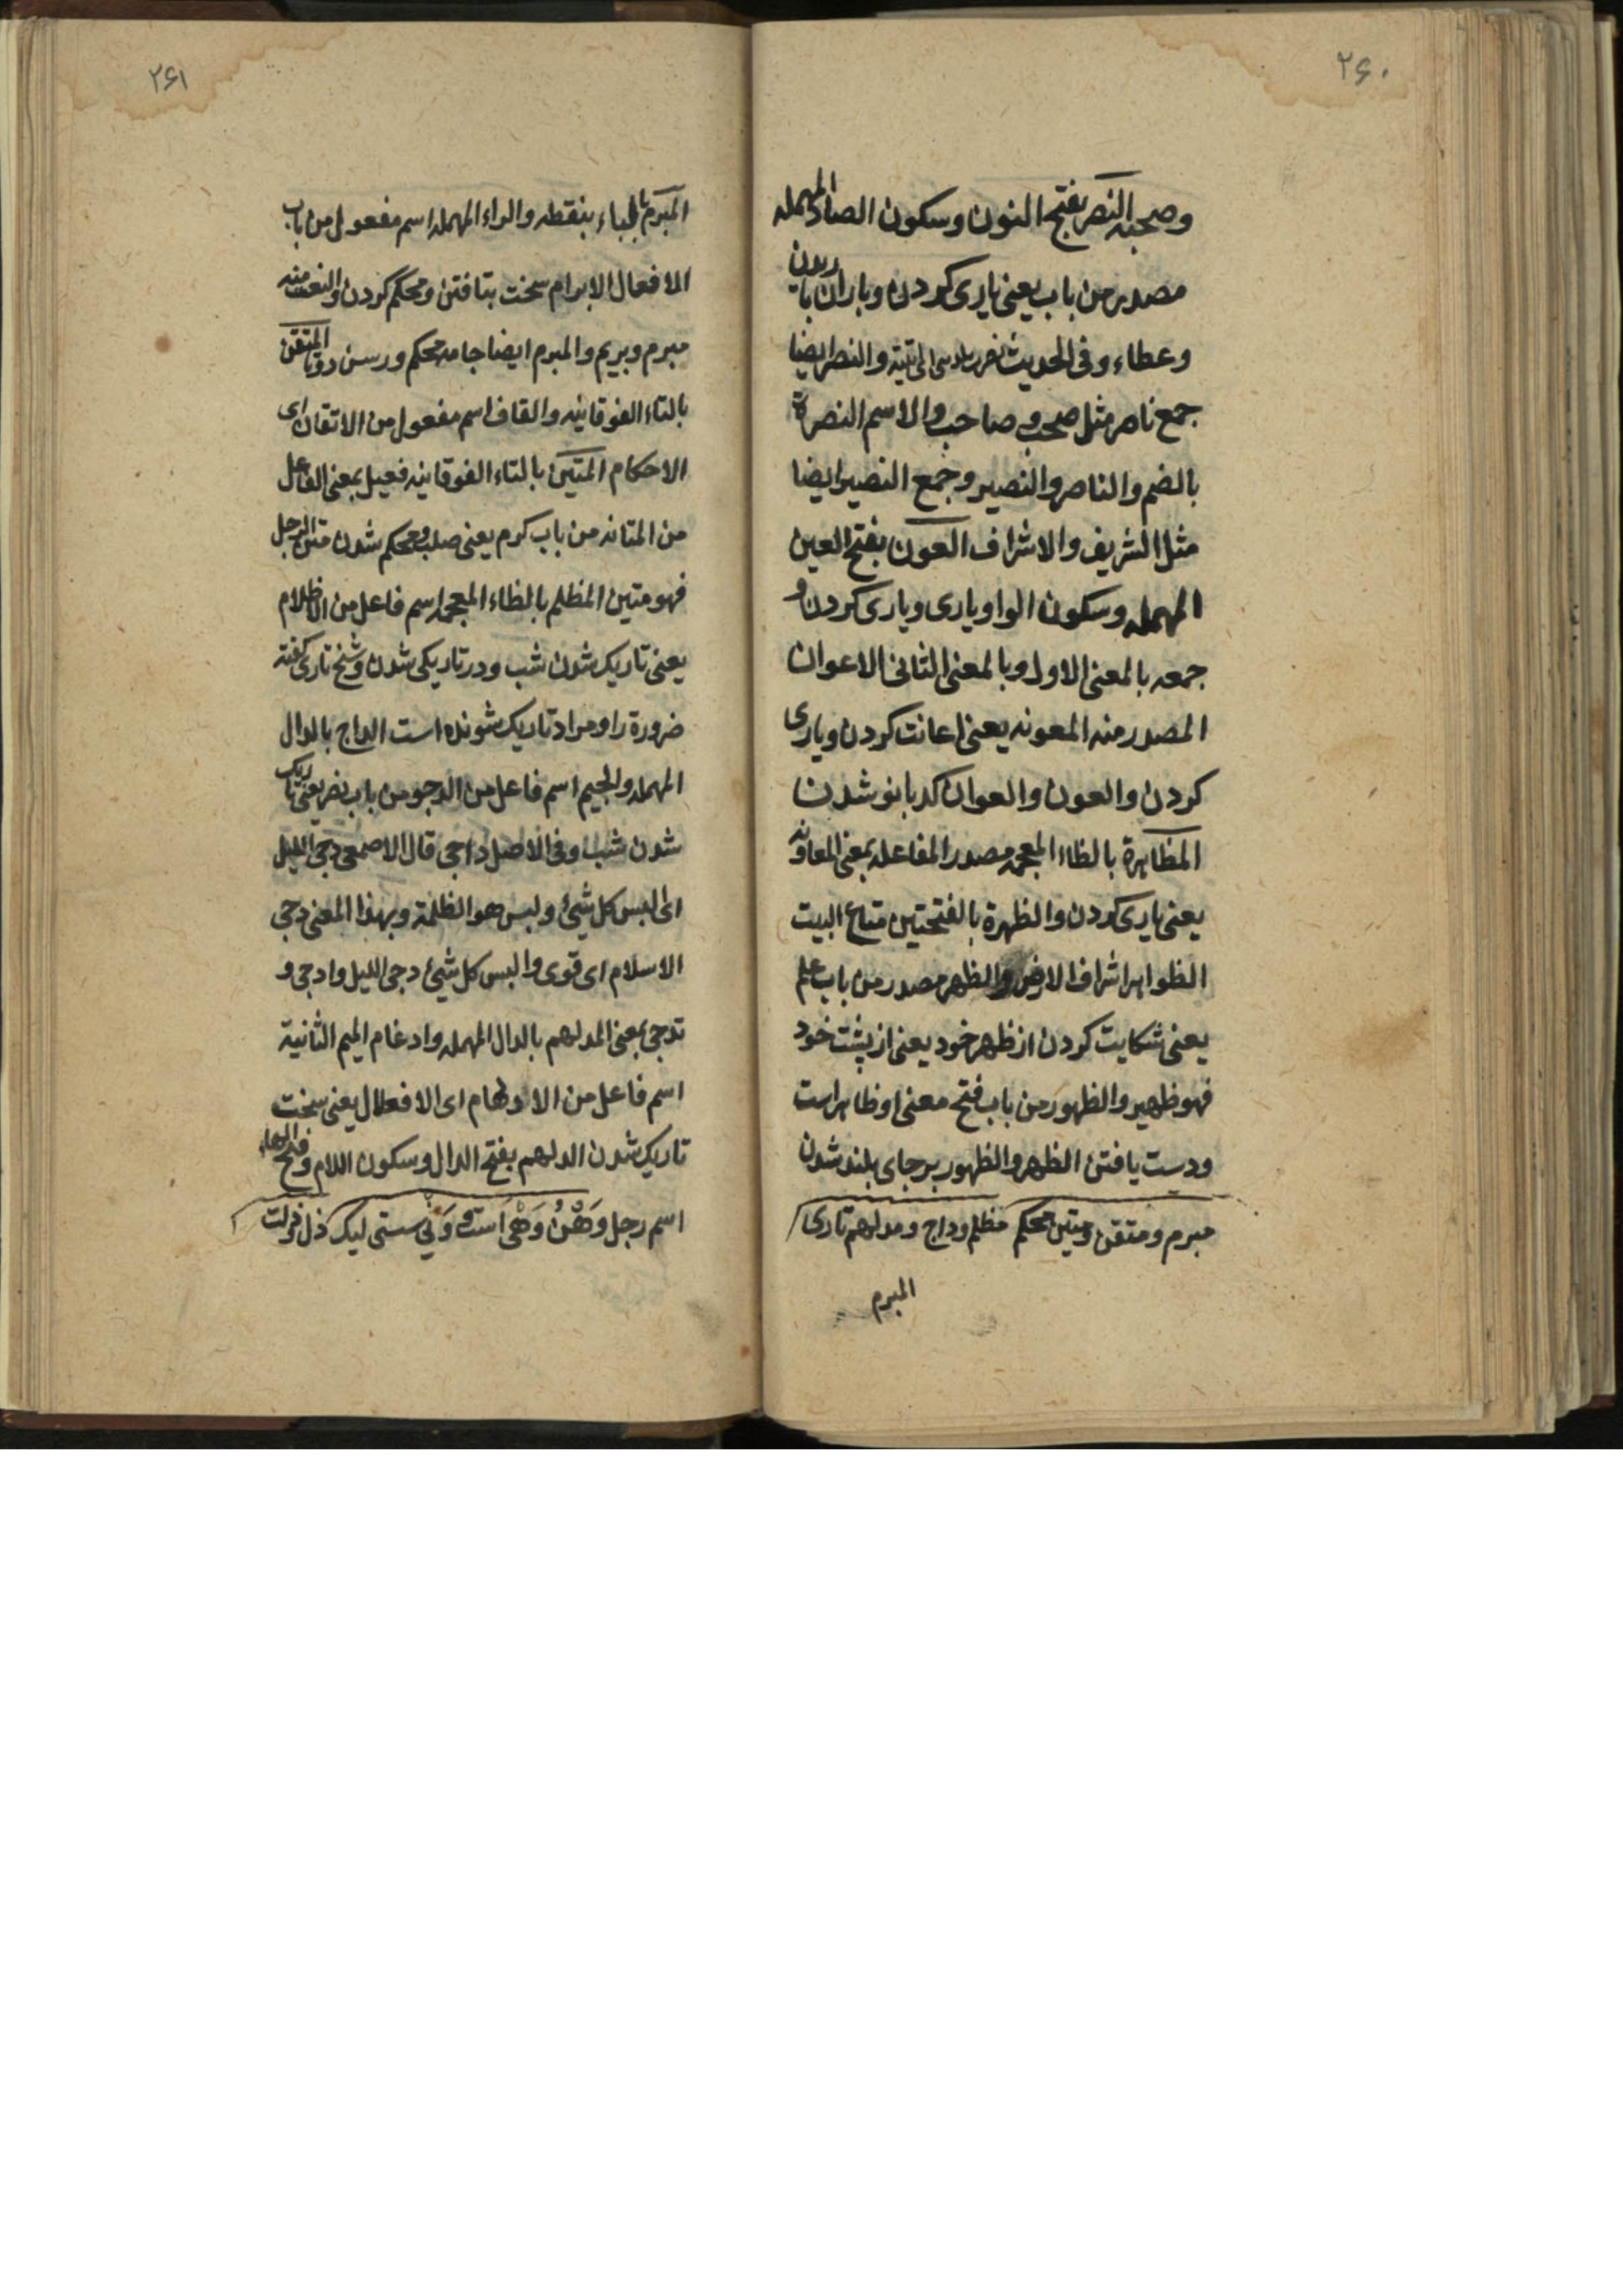 ۲۶۰
وصحبه النصر بفتح النون وسکون الصاد المهمله
مصدر من باب یعنی یاری کردن وباران باریدن
وعطاء وفی الحدیث والنصر ایضا
جمع ناصر مثل صحب وصاحب والاسم النصرة
بالضم والناصر والنصیر وجمع النصیر ایضا
مثل الشریف والاشراف العون بفتح العین
المهمله وسکون الواو یاری ویاری کردن و
جمعه بالمعنی الاول وبالمعنی الثانی الاعوان
المصدر منه المعونه یعنی اعانت کردن ویاری
کردن والعون والعوان کدبانو شدن
المظاهرة بالظاء المعجمه مصدر المفاعله بمعنی المعاونه
یعنی یاری کردن والظهرة بالفتحتین متاع البیت
الظواهر اشراف الارض والظهر مصدر من باب علم
یعنی شکایت کردن از ظهر خود یعنی از پشت خود
فهو ظهیر والظهور من باب فتح معنی او ظاهر است
ودست یافتن الظهر والظهور بر جای بلند شدن
مبرم ومتقن ومتین محکم مظلم وداج ومدلهم تاری
المبرم
۲۶۱
المبرم بالباء بنقطه والراء المهمله اسم مفعول من باب
الافعال الابرام سخت بتافتن ومحکم کردن والنعت منه
مبرم وبریم والمبرم ایضا جامه محکم ورسن دوتا المتقن
بالتاء الفوقانیه والقاف اسم مفعول من الاتقان ای
الاحکام المتین بالتاء الفوقانیه فعیل بمعنی الفاعل
من المتانه من باب کرم یعنی صلب ومحکم شدن متن الرجل
فهو متین المظلم بالظاء المعجمه اسم فاعل من الاظلام
یعنی تاریک شدن شب ودر تاریکی شدن وشیخ تاری گفته
ضرورة را ومراد تاریک شونده است الداج بالدال
المهمله والجیم اسم فاعل من الدجو من باب نصر یعنی تاریک
شدن شب وفی الاصل داجی قال الاصمعی دجی اللیل
ای البس کل شیئ ولیس هو الظلمة وبهذا المعنی دجی
الاسلام ای قوی والبس کل شیئ دجی اللیل وادجی و
تدجی بمعنی المدلهم بالدال المهمله وادغام المیم الثانیة
اسم فاعل من الادلهمام ای الافعلال یعنی سخت
تاریک شدن الدلهم بفتح الدال وسکون اللام وفتح الهاء
اسم رجل وَهْنُ وَهْی است وَنی سستی لیک ذل